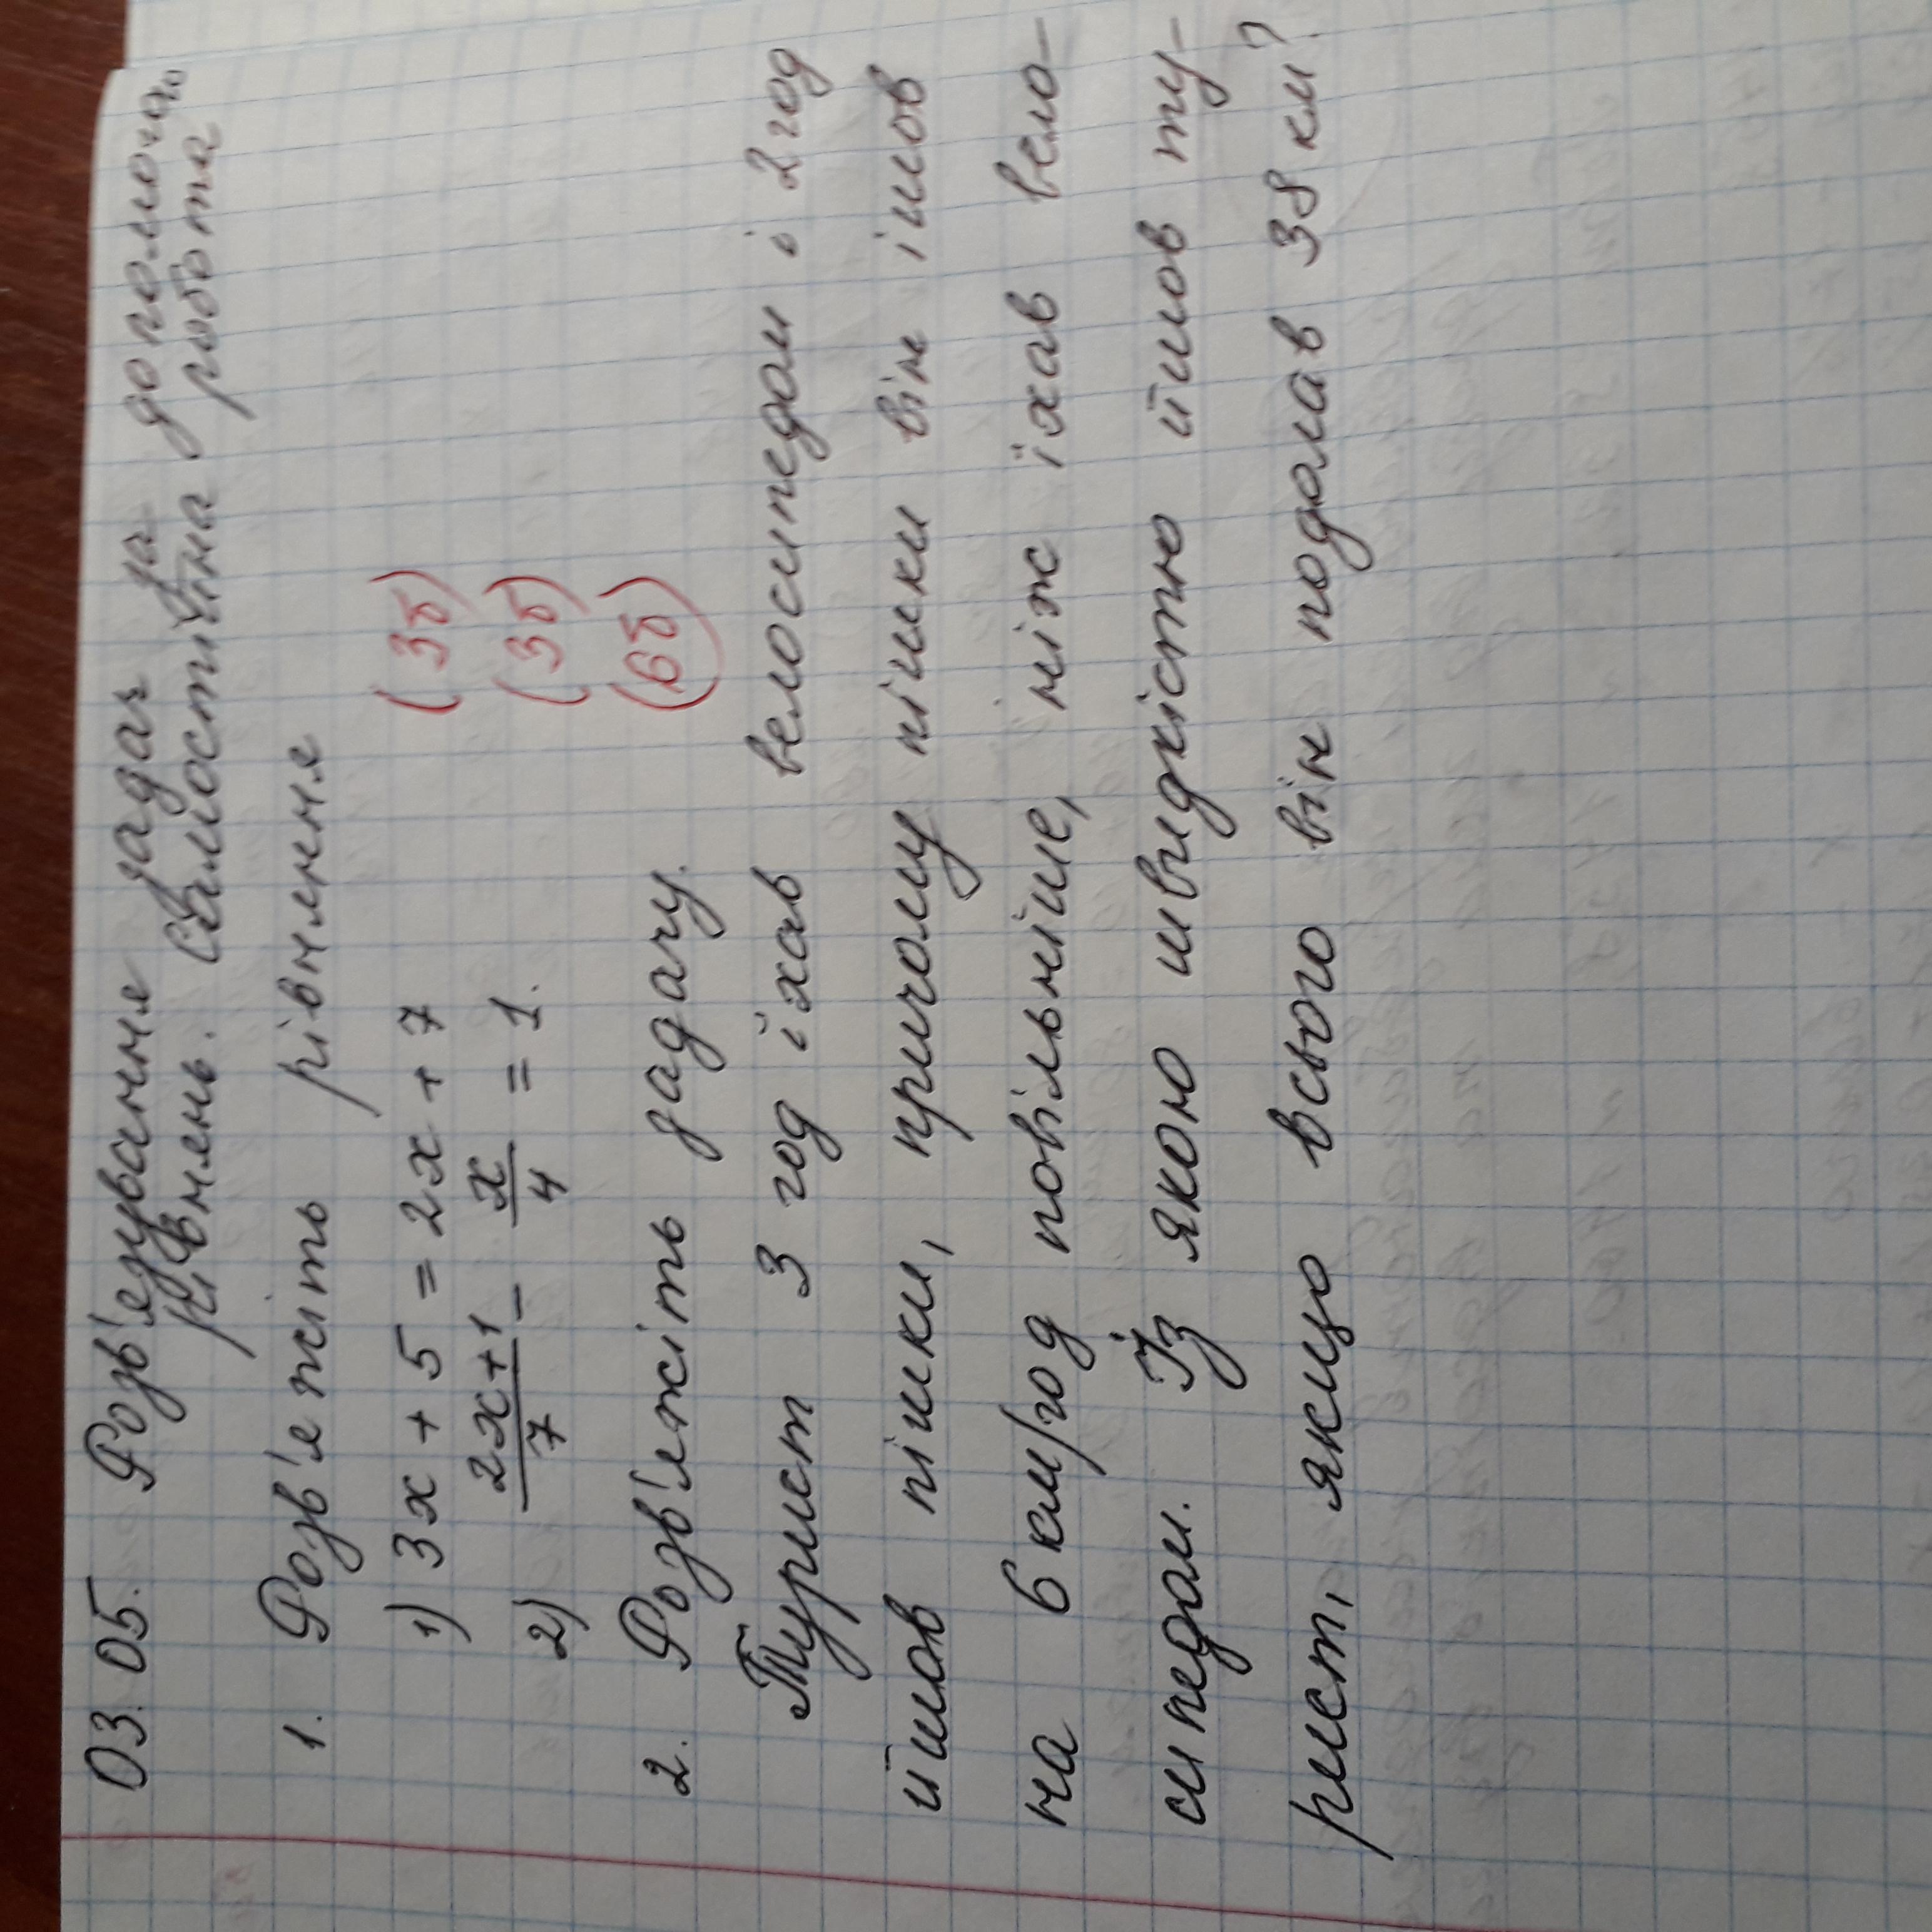 03.05. Розв'язування задач за допомогою
рівнянь. Самостійна робота
1. Розв'яжіть рівняння
1) 3x + 5 = 2x + 7 (3б)
2) \frac{2x+1}{7} - \frac{x}{4} = 1. (3б)
2. Розв'яжіть задачу. (6б)
Турист 3 год їхав велосипедом і 2 год
йшов пішки, причому пішки він ішов
на 6 км/год повільніше, ніж їхав вело-
сипедом. Із якою швидкістю йшов ту-
рист, якщо всього він подолав 38 км?